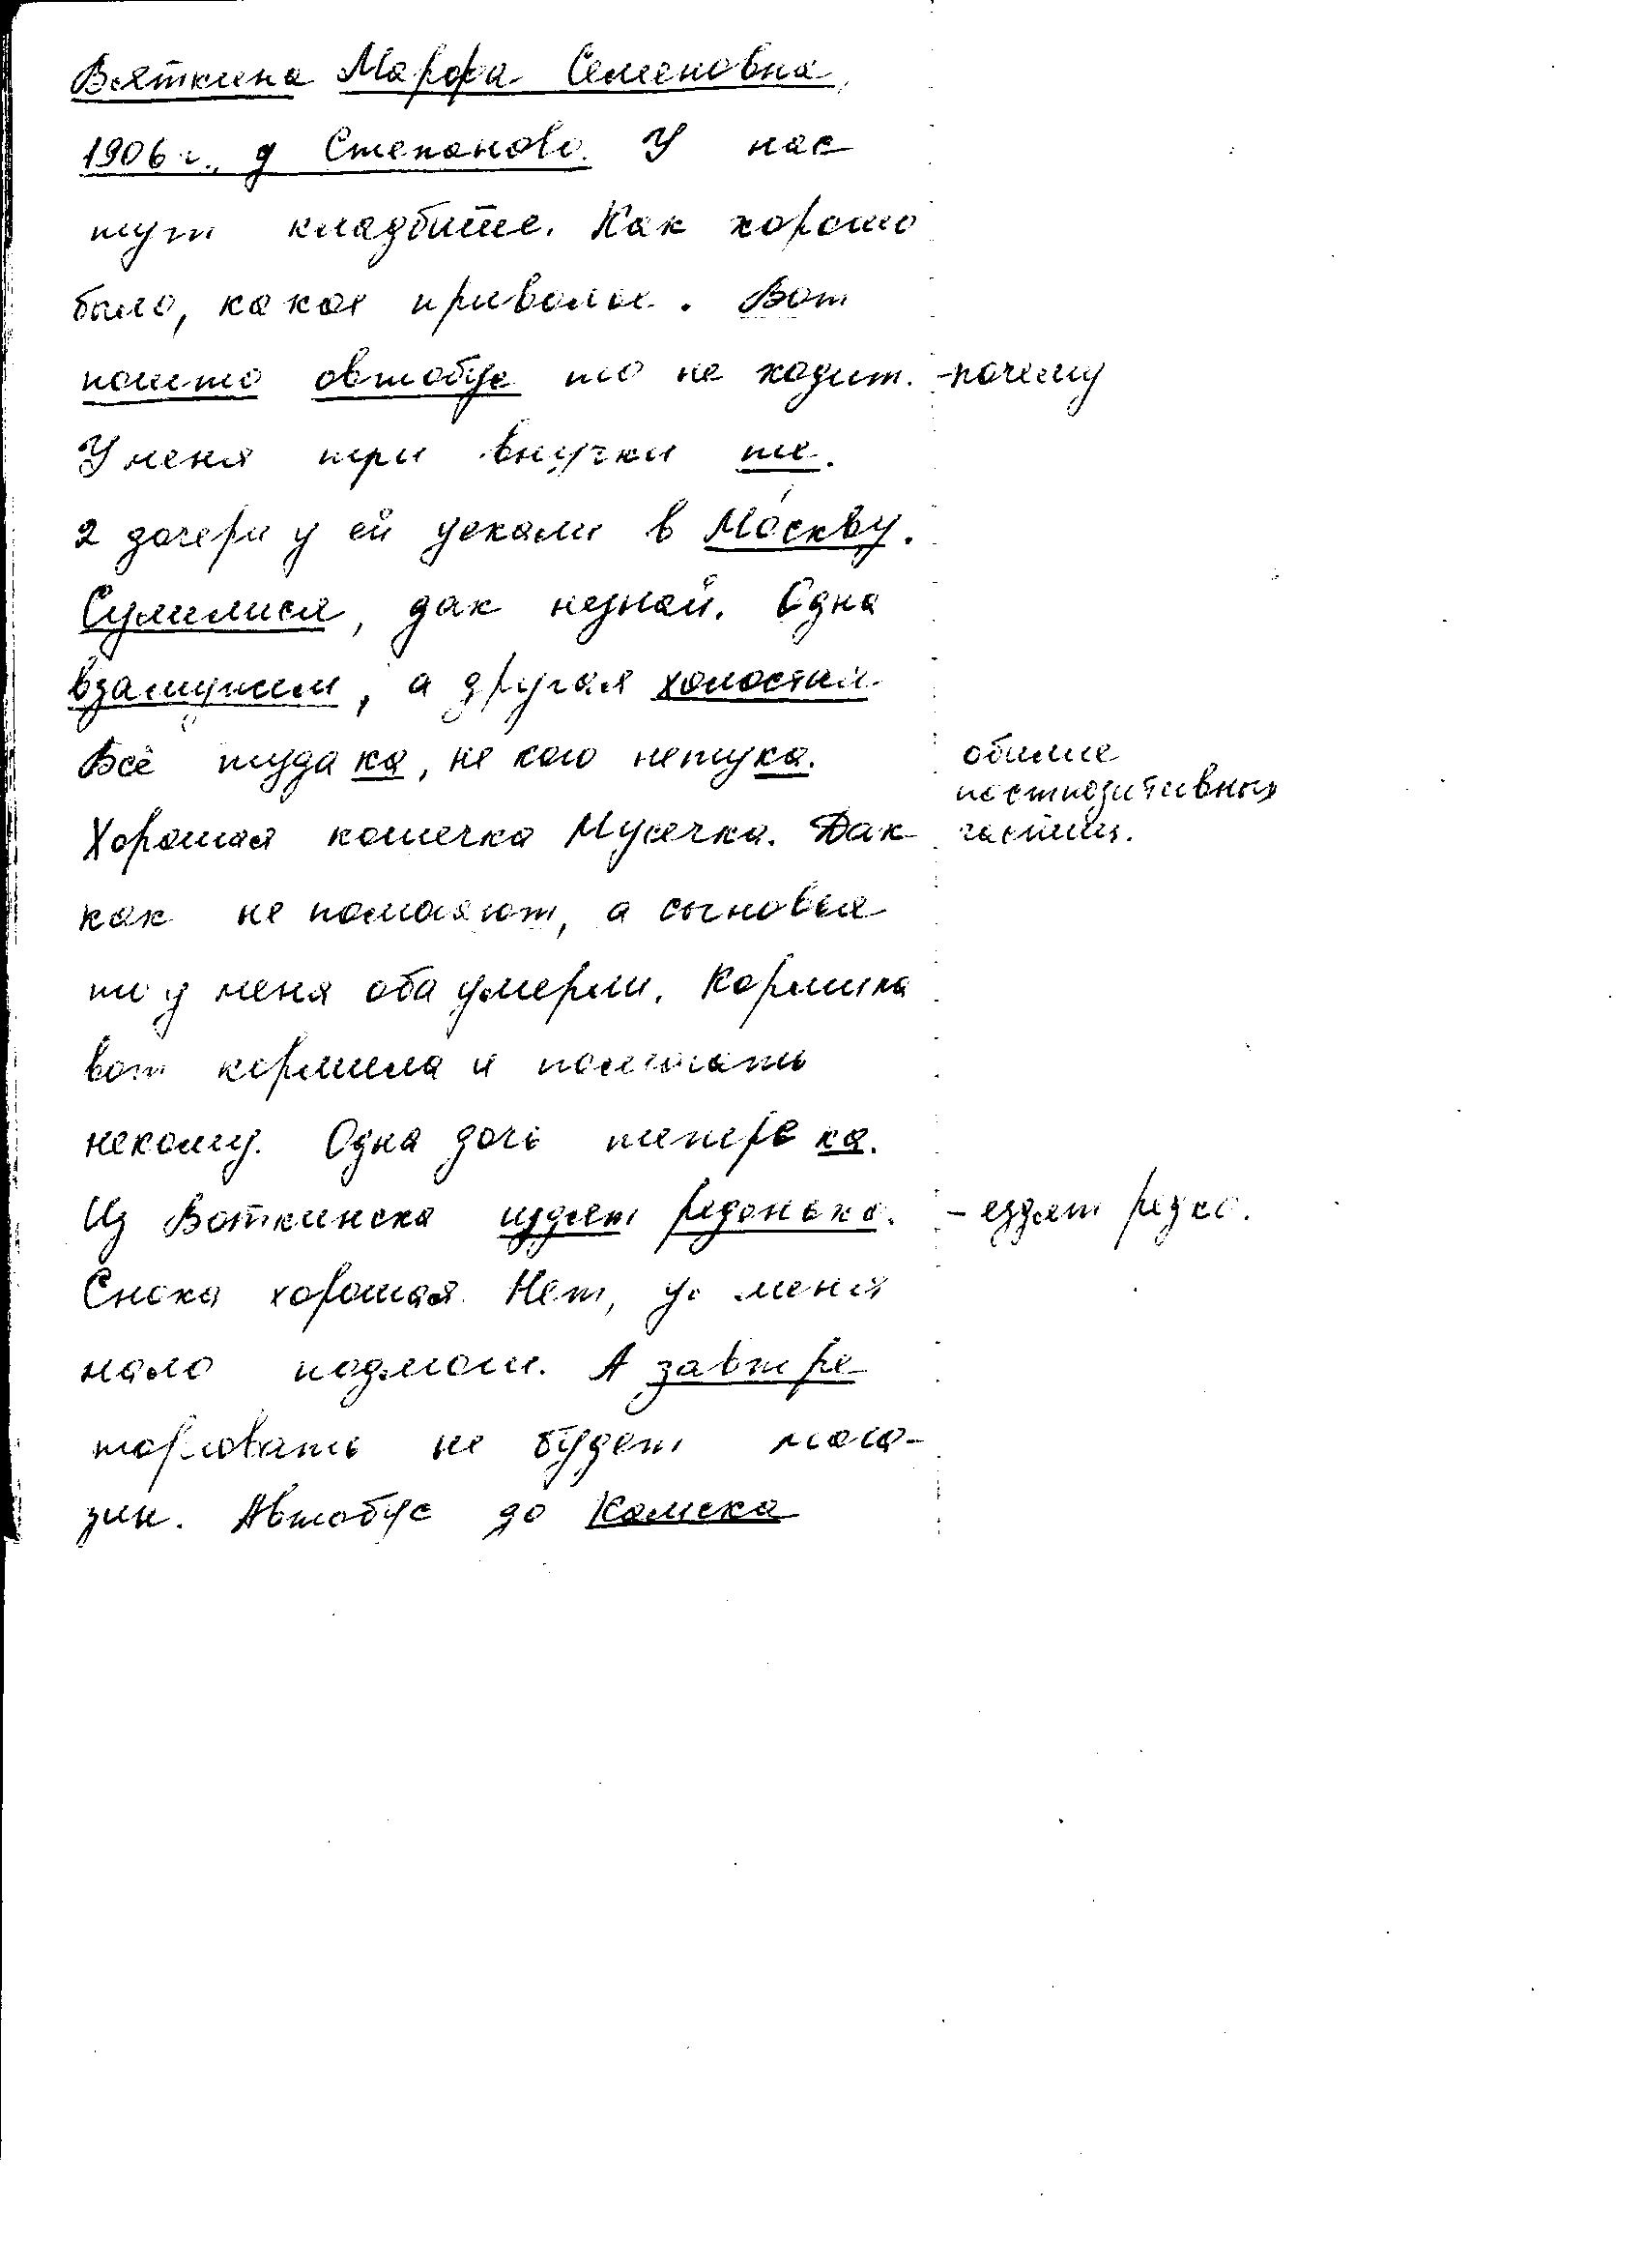 Вяткина Марфа Семеновна,
1906 г., д Степаново. У нас
тут кладбише. Как хорошо
было, какоя приволье. Вот
пошто овтобус то не ходит. -почему
У меня три внучки те.
2 дочери у ей уехали в Мо́скву.
Сулилися, дак незнай. Одна
взамужем, а другая холостая.
Всё туда ка, не кого нетука.
обилие
постпозитивных
Хорошая кошечка Мусечка. Дак частиц.
как не помагают, а сыновья
то у меня оба умерли. Кормила
вот кормила и помогать
некому. Одна дочь теперь ка.
Из Воткинска издят редонько. - ездят редко.
Сноха хорошая. Нет, у меня
мало подмоги. А завтре
торговать не будет мага-
зин. Автобус до Камска